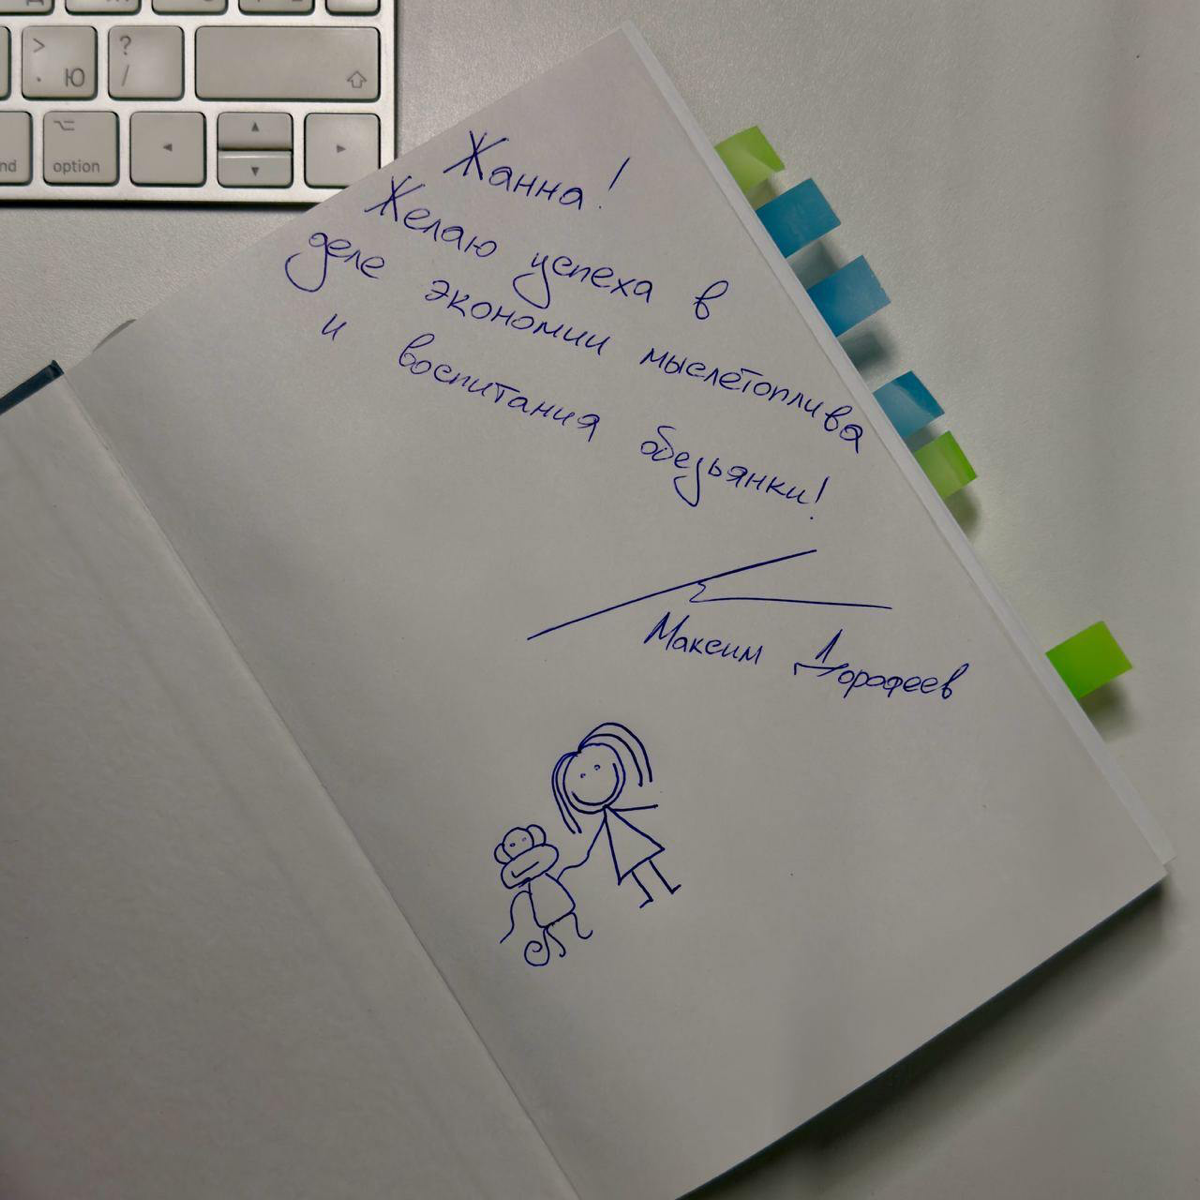 >
.
Ю
?
/
nd
option
Жанна!
Желаю успеха в
деле экономии мыслетоплива
и воспитания обезьянки!
Максим Дорофеев